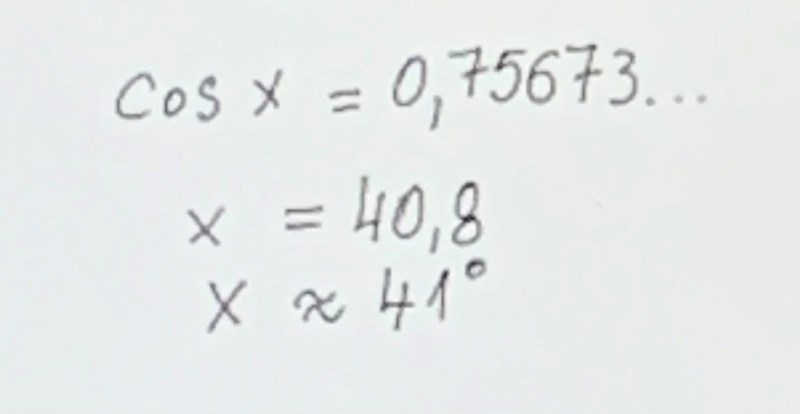 cos x = 0,75673...
x = 40,8
x ≈ 41°